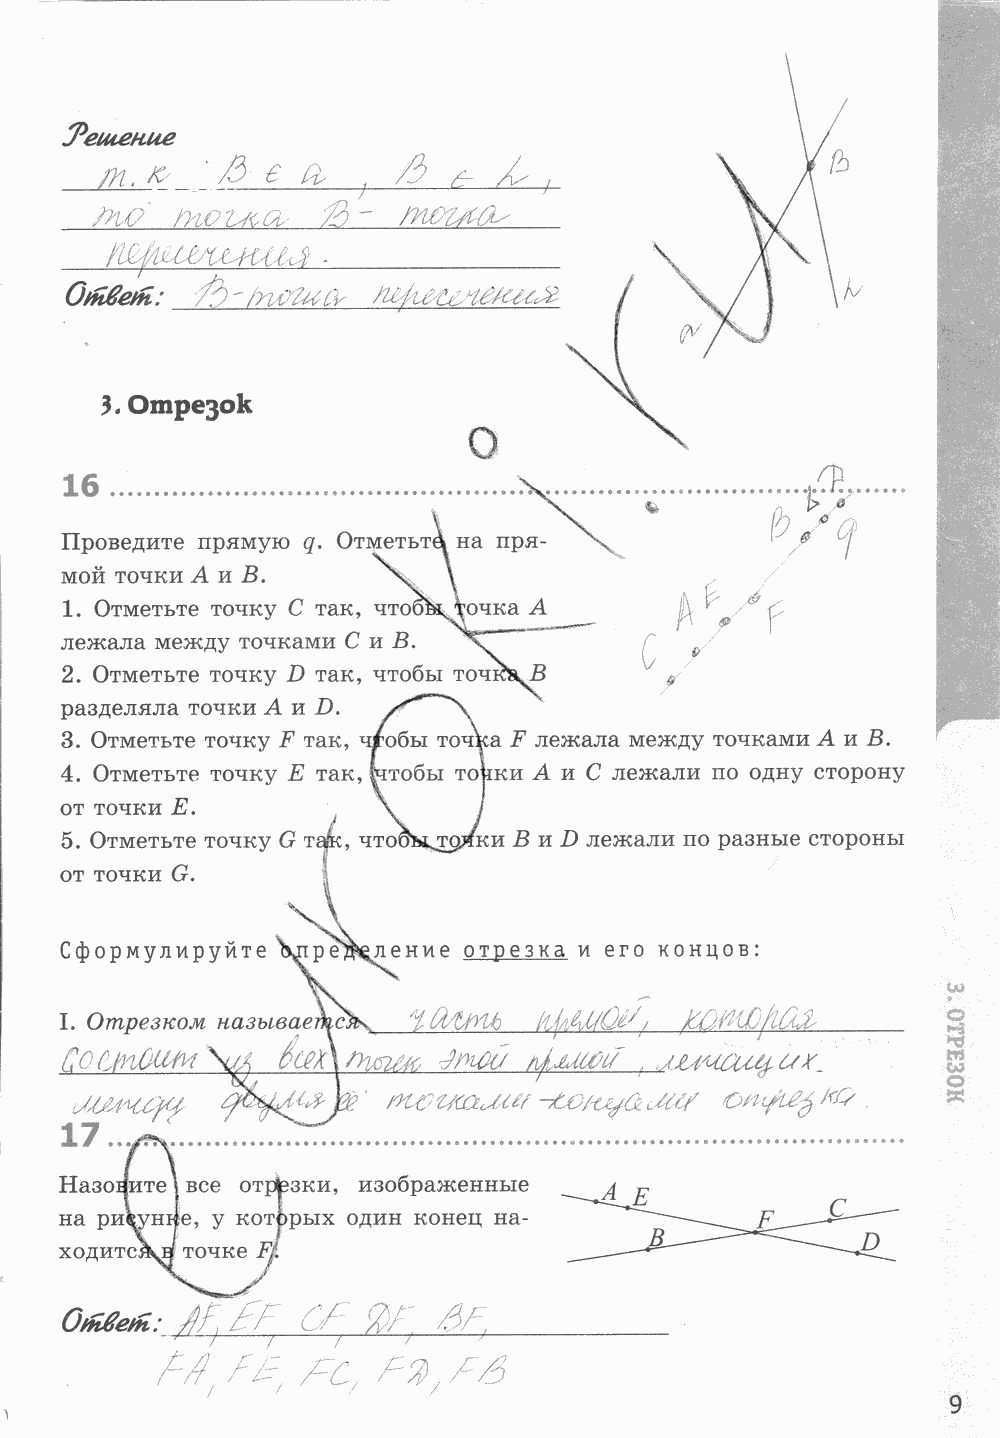 Решение
т.к B ∈ a, B ∈ L,
то точка B- точка
пересечения.
Ответ: B-точка пересечения
B
a
L
3. Отрезок
16
Проведите прямую q. Отметьте на пря-
мой точки A и B.
1. Отметьте точку C так, чтобы точка A
лежала между точками C и B.
2. Отметьте точку D так, чтобы точка B
разделяла точки A и D.
3. Отметьте точку F так, чтобы точка F лежала между точками A и B.
4. Отметьте точку E так, чтобы точки A и C лежали по одну сторону
от точки E.
5. Отметьте точку G так, чтобы точки B и D лежали по разные стороны
от точки G.
C A E F B q
Сформулируйте определение отрезка и его концов:
I. Отрезком называется часть прямой, которая
состоит из всех точек этой прямой, лежащих
между двумя её точками-концами отрезка.
17
Назовите все отрезки, изображенные
на рисунке, у которых один конец на-
ходится в точке F.
A E F C
B D
Ответ: AF, EF, CF, DF, BF,
FA, FE, FC, FD, FB
3. ОТРЕЗОК
9